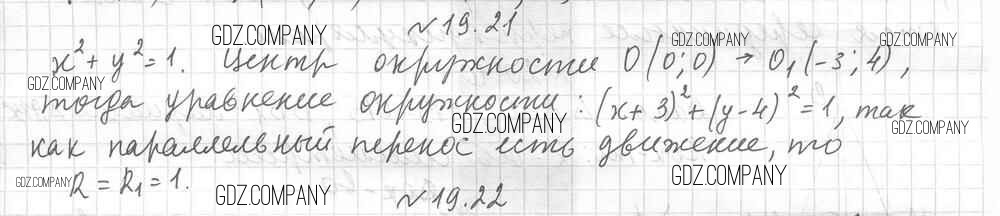 № 19.21
x² + y² = 1. Центр окружности O(0;0) → O₁(-3;4),
тогда уравнение окружности: (x+3)² + (y-4)² = 1, так
как параллельный перенос есть движение, то
R = R₁ = 1.
№ 19.22
GDZ.COMPANY
GDZ.COMPANY
GDZ.COMPANY
GDZ.COMPANY
GDZ.COMPANY
GDZ.COMPANY
GDZ.COMPANY
GDZ.COMPANY
GDZ.COMPANY